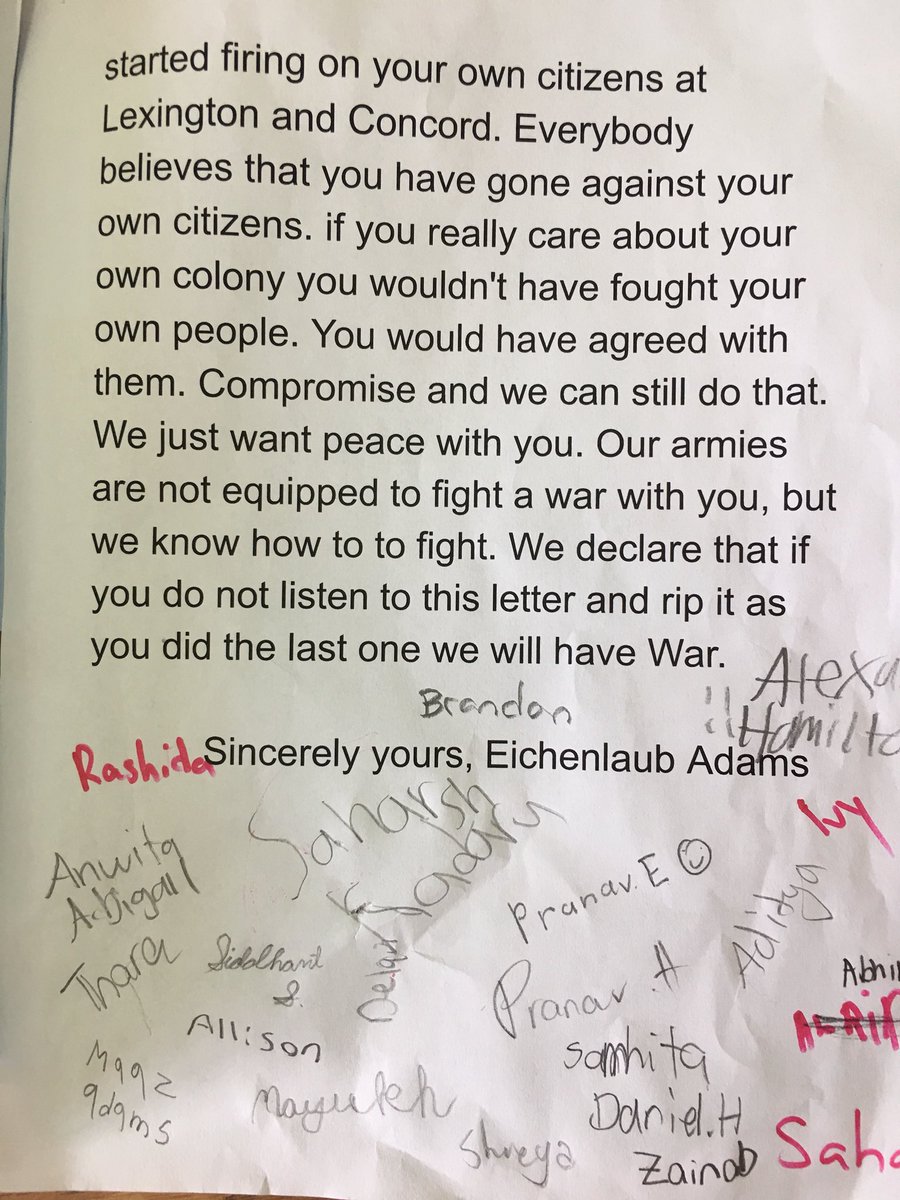 started firing on your own citizens at
Lexington and Concord. Everybody
believes that you have gone against your
own citizens. if you really care about your
own colony you wouldn't have fought your
own people. You would have agreed with
them. Compromise and we can still do that.
We just want peace with you. Our armies
are not equipped to fight a war with you, but
we know how to to fight. We declare that if
you do not listen to this letter and rip it as
you did the last one we will have War.
Alexa
Brandon
Hamilto
Rashida
Sincerely yours, Eichenlaub Adams
Saharsh
Ivy
Anwita
Abigail
Pranav.E
Aditya
Thara
Siddhant
S.
Pranav.A
Abhi
Allison
Samhita
Mayukh
Daniel.H
Shreya
Zainab
Saha